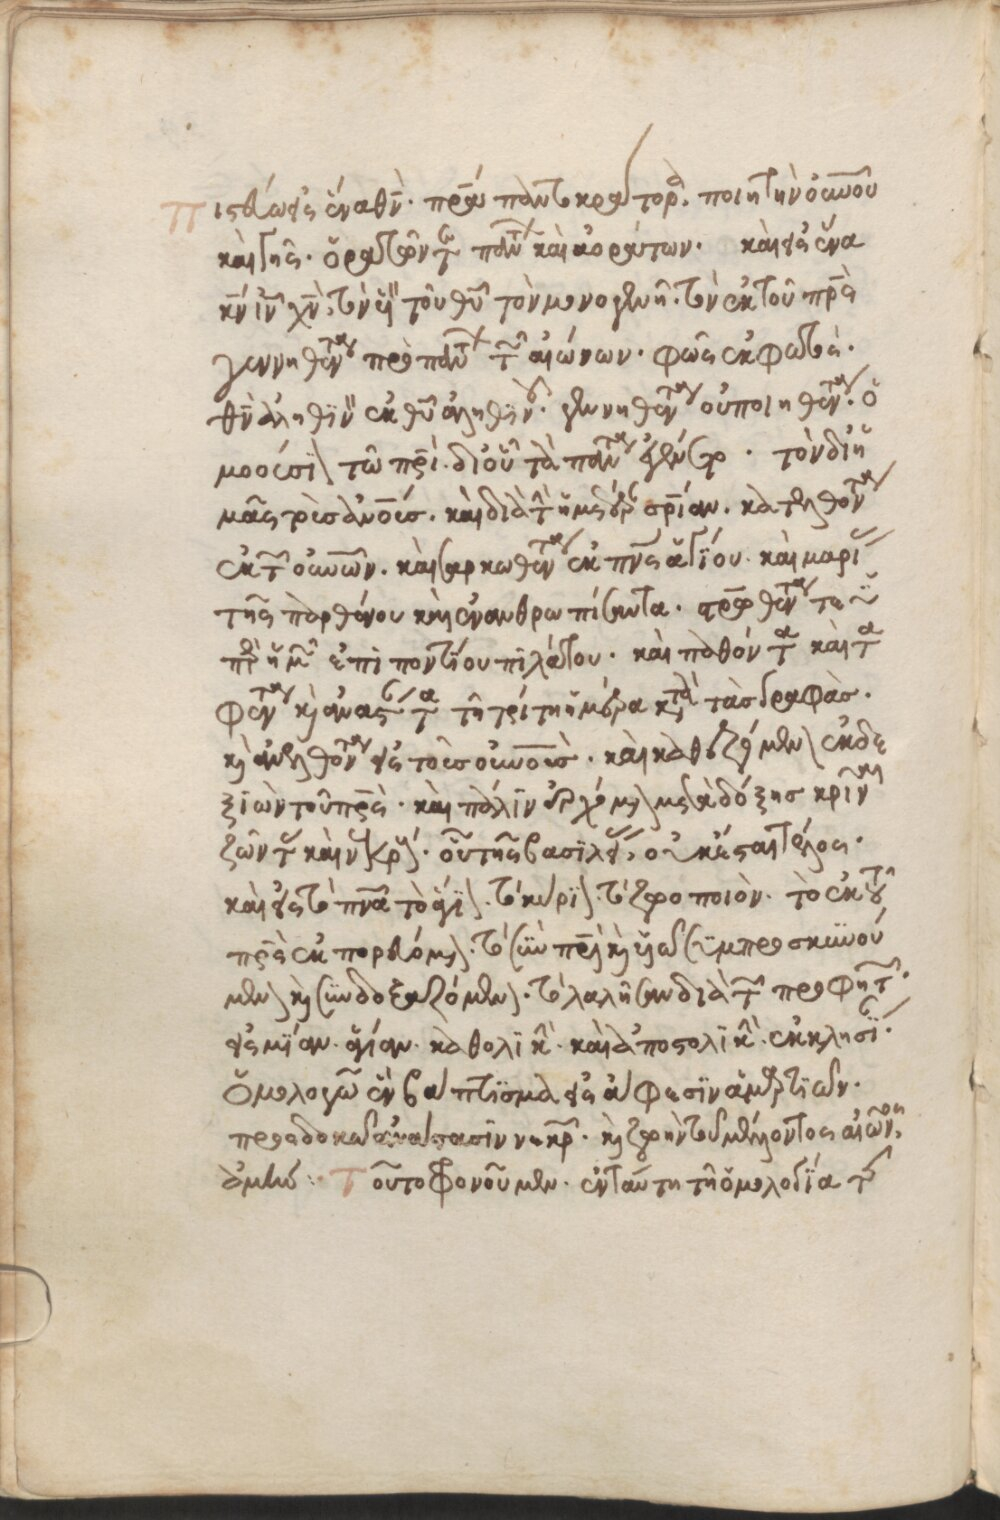 πιστεύω εἰς ἕνα θν̅· πρα̅ παντοκράτορα· ποιητὴν οὐνοῦ
καὶ γῆς· ὁρατῶν τε πάντων καὶ ἀοράτων· καὶ εἰς ἕνα
κν̅ ιν̅ χν̅· τὸν υἱὸν τοῦ θυ̅ τὸν μονογενῆ· τὸν ἐκ τοῦ πρς̅
γεννηθέντα πρὸ πάντων τῶν αἰώνων· φῶς ἐκ φωτός·
θν̅ ἀληθϊνὸν ἐκ θυ̅ ἀληθϊνοῦ· γεννηθέντα οὐ ποιηθέντα· ὁ
μοούσϊον τῶ πρι̅· δι' οὗ τὰ πάντα ἐγένετο· τὸν δι' ἡ
μᾶς τοὺς ἀνους̅· καὶ διὰ τὴν ἡμετέραν σρίαν· κατελθόντα
ἐκ τῶν οὐνῶν· καὶ σαρκωθέντα ἐκ πνς̅ ἁγΐου· καὶ μαρίας
τῆς παρθένου καὶ ἐνανθρωπίσαντα· στρωθέντα τε ὑ
πὲρ ἡμῶν ἐπὶ ποντΐου πϊλάτου· καὶ παθόντα καὶ τα
φέντα κ(αὶ) ἀναστάντα τῆ τρίτη ἡμέρα κατὰ τὰς γραφάς·
κ(αὶ) ἀνελθόντα εἰς τοὺς οὐνούς· καὶ καθεζόμενον ἐκ δε
ξϊῶν τοῦ πρς̅· καὶ πάλϊν ἐρχόμενον μετὰ δόξης κρῖναι
ζῶντας καὶ νεκρούς· οὗ τῆς βασϊλείας οὐκ ἔσται τέλος·
καὶ εἰς τὸ πνα̅ τὸ ἅγϊον· τὸ κύρϊον· τὸ ζωοποιόν· τὸ ἐκ τοῦ
πρς̅ ἐκπορευόμενον· τὸ σὺν πρι̅ κ(αὶ) υἱῶ συμπροσκυνού
μενον κ(αὶ) συνδοξαζόμενον· τὸ λαλῆσαν διὰ τῶν προφητῶν·
εἰς μΐαν· ἁγίαν· καθολϊκὴν· καὶ ἀποστολϊκὴν· ἐκκλησΐαν·
ὁμολογῶ ἓν βάπτϊσμα εἰς ἄφεσϊν ἁμαρτϊῶν·
προσδοκῶ ἀνάστασϊν νεκρῶν· κ(αὶ) ζωὴν τοῦ μέλλοντος αἰῶνος,
ἀμήν: Τοῦτο φρονοῦμεν· ἐν ταύτη τῆ ὁμολογΐα